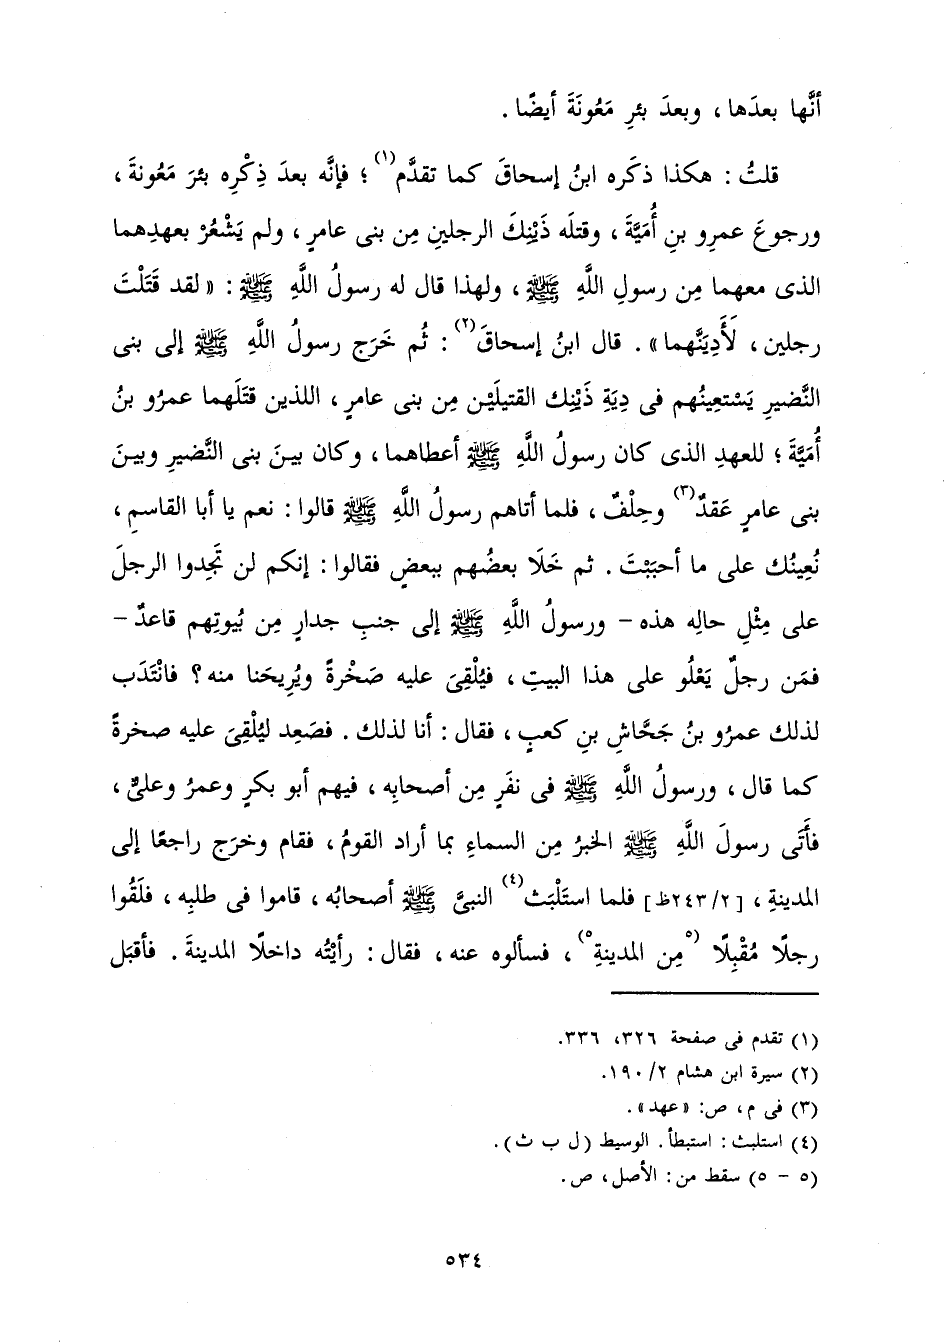 أنَّها بعدَها ، وبعدَ بئرِ مَعُونَةَ أيضًا .
قلتُ : هكذا ذكَره ابنُ إسحاقَ كما تقدَّم(١) ؛ فإنَّه بعدَ ذِكْرِه بئرَ مَعُونةَ ،
ورجوعَ عمرِو بنِ أُمَيَّةَ ، وقتلَه ذَيْنِكَ الرجلينِ مِن بنى عامرٍ ، ولم يَشْعُرْ بعهدِهما
الذى معهما مِن رسولِ اللَّهِ ﷺ ، ولهذا قال له رسولُ اللَّهِ ﷺ : « لقد قَتَلْتَ
رجلين ، لَأَدِيَنَّهما » . قال ابنُ إسحاقَ(٢) : ثُم خَرَج رسولُ اللَّهِ ﷺ إلى بنى
النَّضيرِ يَسْتعينُهم فى دِيَةِ ذَيْنِك القتيلَيْن مِن بنى عامرٍ ، اللذين قتَلَهما عمرُو بنُ
أُمَيَّةَ ؛ للعهدِ الذى كان رسولُ اللَّهِ ﷺ أعطاهما ، وكان بينَ بنى النَّضيرِ وبينَ
بنى عامرٍ عَقدٌ(٣) وحِلْفٌ ، فلما أتاهم رسولُ اللَّهِ ﷺ قالوا : نعم يا أبا القاسمِ ،
نُعِينُك على ما أحبَبْتَ . ثم خَلَا بعضُهم ببعضٍ فقالوا : إنكم لن تَجِدوا الرجلَ
على مِثْلِ حالِه هذه – ورسولُ اللَّهِ ﷺ إلى جنبِ جدارٍ مِن بُيوتِهم قاعدٌ –
فمَن رجلٌ يَعْلُو على هذا البيتِ ، فيُلْقِىَ عليه صَخْرةً ويُرِيحَنا منه ؟ فانْتَدَب
لذلك عمرُو بنُ جَحَّاشِ بنِ كعبٍ ، فقال : أنا لذلك . فصَعِد ليُلْقِىَ عليه صخرةً
كما قال ، ورسولُ اللَّهِ ﷺ فى نفَرٍ مِن أصحابِه ، فيهم أبو بكرٍ وعمرُ وعلىٌّ ،
فأَتَى رسولَ اللَّهِ ﷺ الخبرُ مِن السماءِ بما أراد القومُ ، فقام وخرَج راجعًا إلى
المدينةِ ، [٢/ ٢٤٣ظ] فلما استَلْبَث(٤) النبىَّ ﷺ أصحابُه ، قاموا فى طلبِه ، فلَقُوا
رجلًا مُقْبِلًا (٥مِن المدينةِ٥) ، فسألوه عنه ، فقال : رأيْتُه داخلًا المدينةَ . فأقبَل
(١) تقدم فى صفحة ٣٢٦، ٣٣٦.
(٢) سيرة ابن هشام ٢/ ١٩٠.
(٣) فى م، ص: « عهد » .
(٤) استلبث : استبطأ . الوسيط (ل ب ث) .
(٥ - ٥) سقط من : الأصل، ص.
٥٣٤